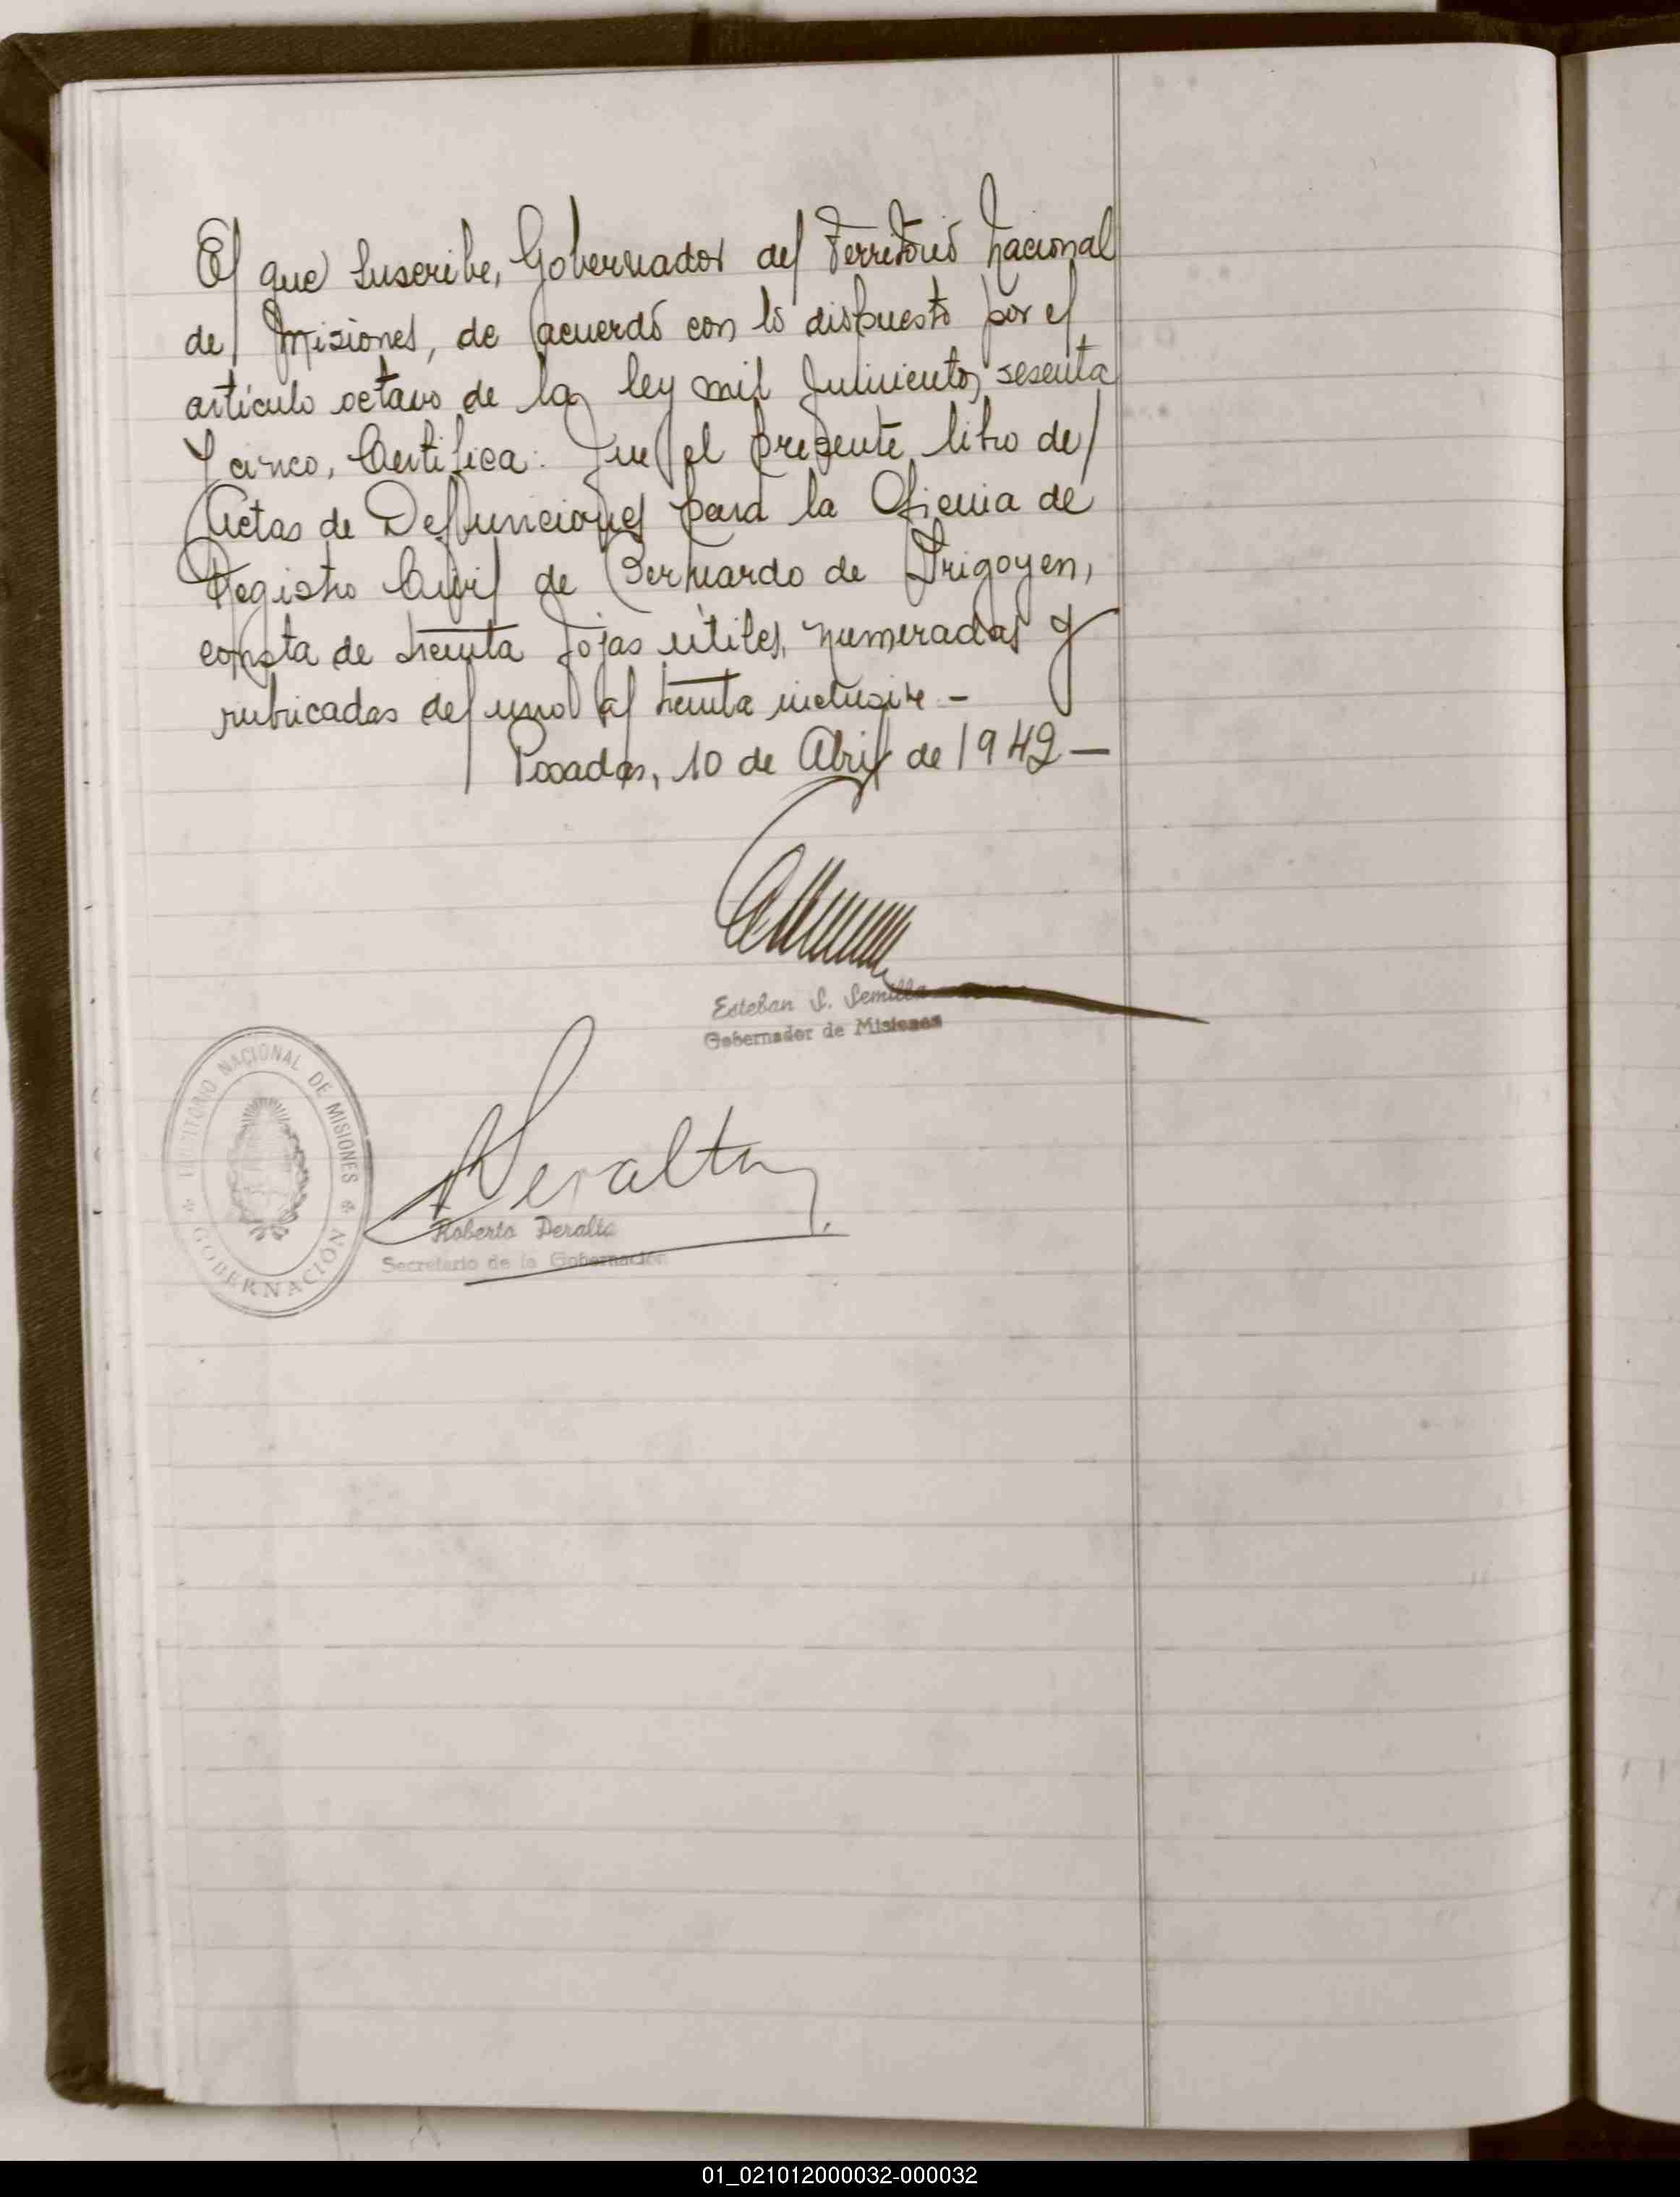 El que suscribe, Gobernador del Territorio Nacional
de Misiones, de acuerdo con lo dispuesto por el
artículo octavo de la ley mil quinientos sesenta
y cinco, Certifica: Que el presente libro de
Actas de Defunciones para la Oficina de
Registro Civil de Bernardo de Irigoyen,
consta de treinta fojas útiles, numeradas y
rubricadas del uno al treinta inclusive.-
Posadas, 10 de Abril de 1942-
Esteban S. Semilla
Gobernador de Misiones
TERRITORIO NACIONAL DE MISIONES
GOBERNACIÓN
Peralta
Roberto Peralta
Secretario de la Gobernación
01_021012000032-000032